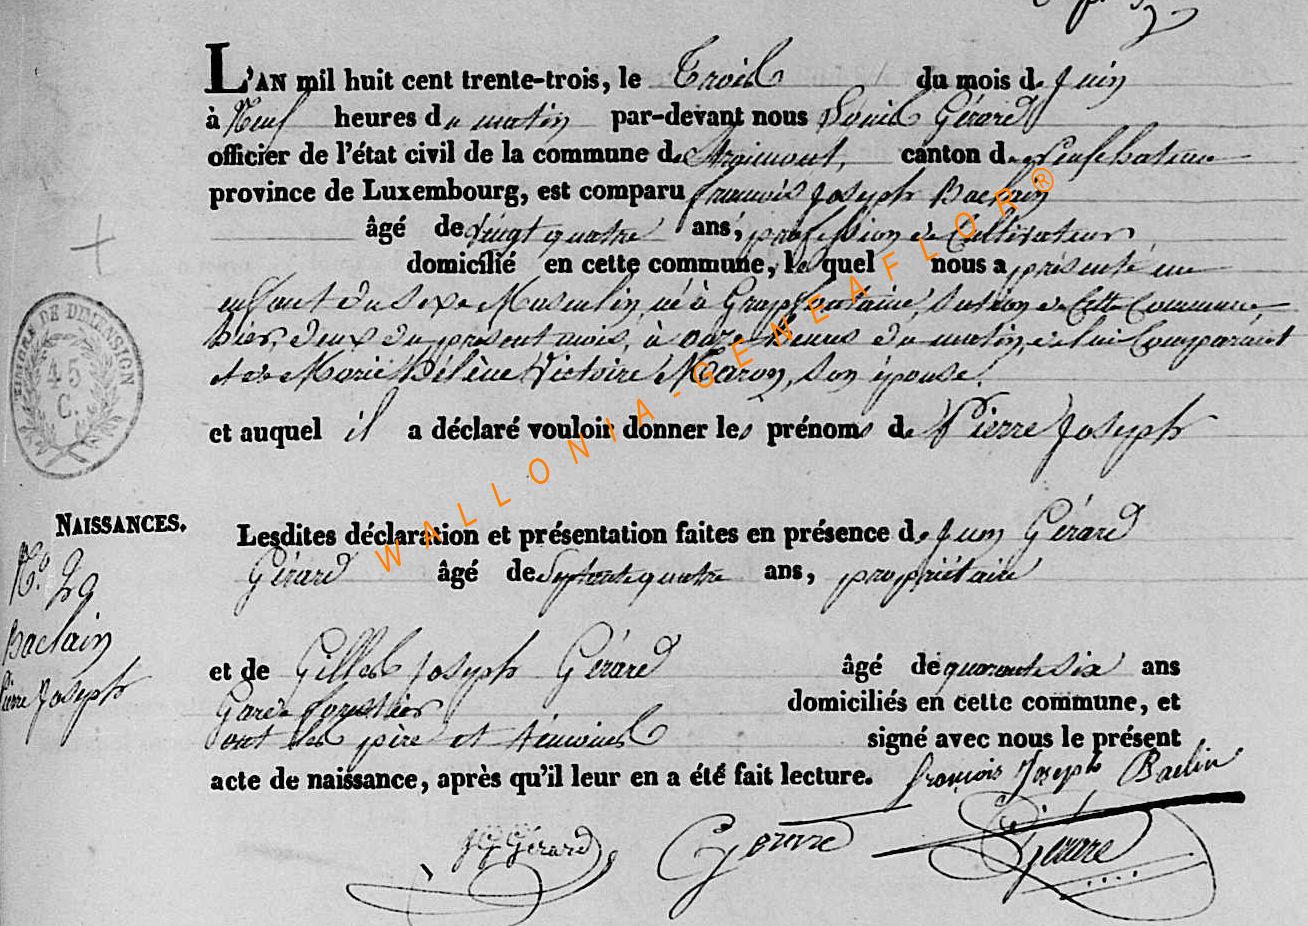 L'AN mil huit cent trente-trois, le Trois du mois de Juin
à Neuf heures du matin par-devant nous Louis Gérard
officier de l'état civil de la commune de Straimont, canton de Neufchateau
province de Luxembourg, est comparu françois Joseph Baclain
âgé de vingt quatre ans, profession de Cultivateur
domicilié en cette commune, lequel nous a présenté un
enfant du sexe Masculin, né à Grapfontaine, section de Cette Commune,
hier, deux du présent mois, à onze heures du matin, de lui Comparant
et de Marie Hélène Victoire Maron, son épouse,
et auquel il a déclaré vouloir donner les prénoms de Pierre Joseph
NAISSANCES.
N.o 29
Baclain
Pierre Joseph
Lesdites déclaration et présentation faites en présence de Jean Gérard
Gérard âgé de Septante quatre ans, propriétaire
et de Gilles Joseph Gérard âgé de quarante six ans
Garde forestier domiciliés en cette commune, et
ont les père et témoins signé avec nous le présent
acte de naissance, après qu'il leur en a été fait lecture. françois Joseph Baclin
JG Gérard Gerard Gerard
TIMBRE DE DIMENSION
45
C.
WALLONIA-GENEAFLOR®